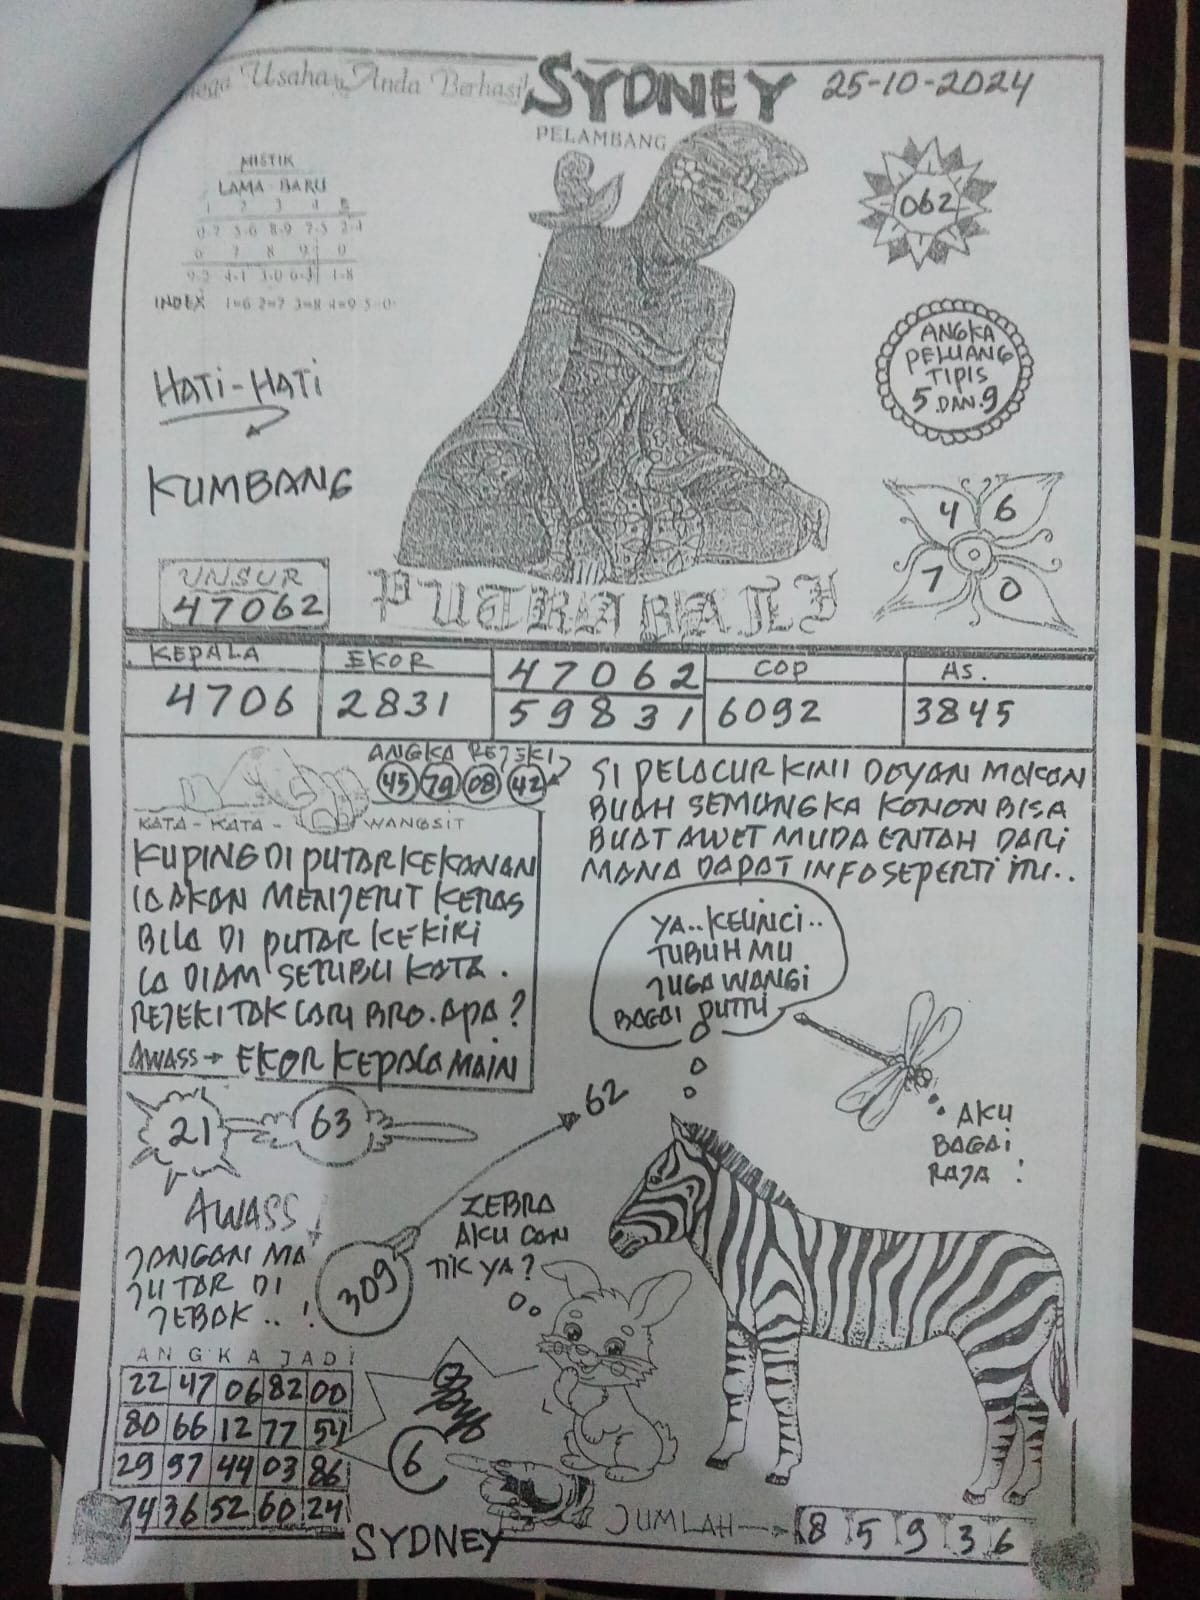 Usaha Anda Berhasil
SYDNEY
25-10-2024
PELAMBANG
MISTIK
LAMA-BARU
1 2 3 4 5
0-7 5-6 8-9 7-5 2-4
6 7 8 9 0
9-2 4-1 3-0 6-3 1-8
INDEX 1=6 2=7 3=8 4=9 5=0
062
ANGKA
PELUANG
TIPIS
5 DAN 9
HATI-HATI
KUMBANG
4 6
7 0
UNSUR
47062
PUTRA BALI
KEPALA
4706
EKOR
2831
47062
59831
COP
6092
AS.
3845
ANGKA REJEKI
45 79 08 42
KATA-KATA- WANGSIT
KUPING DI PUTAR KEKANAN
IA AKAN MENJERIT KERAS
BILA DI PUTAR KEKIRI
IA DIAM SERIBU KATA.
REJEKI TAK LARI BRO. APA?
AWASS → EKOR KEPALA MAIN
SI PELACUR KINI DOYAN MAKAN
BUAH SEMANGKA KONON BISA
BUAT AWET MUDA ENTAH DARI
MANA DAPAT INFO SEPERTI ITU..
YA..KELINCI..
TUBUHMU
JUGA WANGI
BAGAI PUTRI
AKU
BAGAI
RAJA !
21 63
62
309
AWASS
JANGAN MA
JU TAR DI
JEBAK.. !
ZEBRA
AKU CAN
TIK YA?
ANGKA JADI
22 47 06 82 00
80 66 12 77 54
29 97 44 03 86
74 36 52 60 24
6
JUMLAH → 8 5 9 3 6
SYDNEY